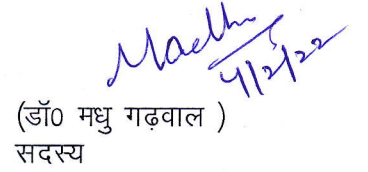 Madhu
4/2/22
(डॉ0 मधु गढ़वाल )
सदस्य